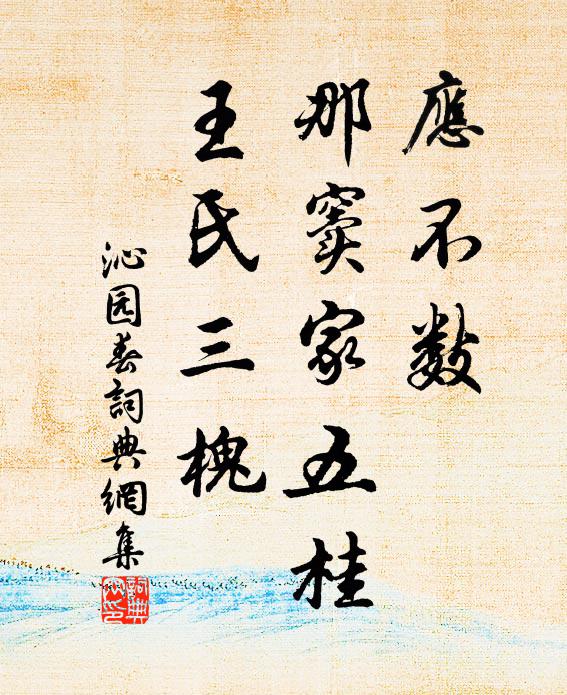 應不數
那竇家五桂
王氏三槐
沁园春詞典網集